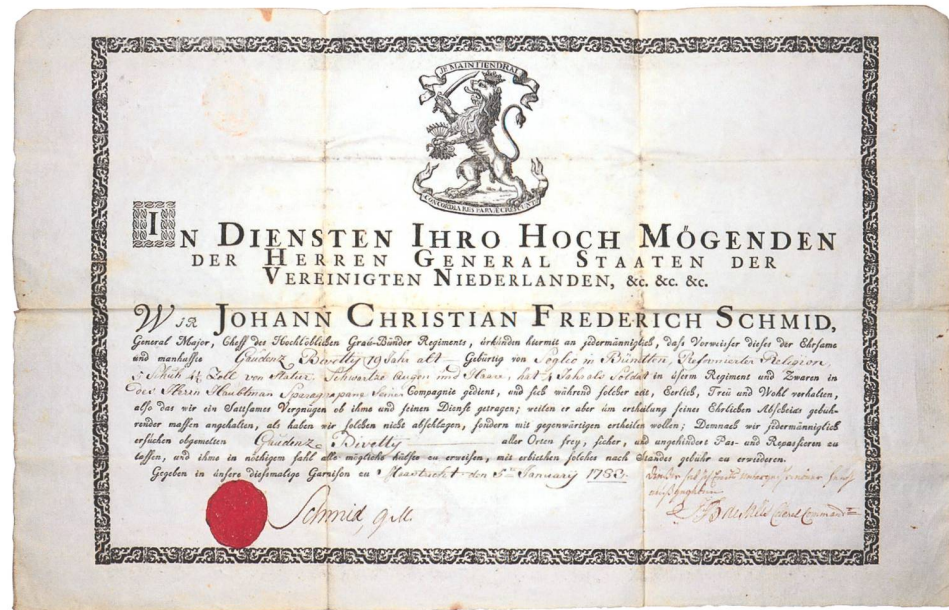 JE MAINTIENDRAI
CONCORDIA RES PARVÆ CRESCUNT
IN DIENSTEN IHRO HOCH MÖGENDEN
DER HERREN GENERAL STAATEN DER
VEREINIGTEN NIEDERLANDEN, &c. &c. &c.
WIR JOHANN CHRISTIAN FREDERICH SCHMID,
General Major, Cheff des Hochlöblichen Grau-Bünder Regiments, urkünden hiermit an jedermänniglich, dass Vorweiser dieses der Ehrsame
und manhaffte Gaudenz Bivetty 19 Jahr alt Gebürtig von Soglio in Bündten, Reformierter Religion,
5 Schub 4½ Zoll von Statur, Schwartze Augen und Haare, hat 4 Jahr als Soldat in üserm Regiment und Zwaren in
des Herren Haubtman Compagnie gedient, und sich während solcher zeit, Eerlich, Treü und Wohl verhalten,
also das wir ein Sattsames Vergnügen ob ihme und seinen Dienst getragen; weilen er aber üm ertheilung seines Ehrlichen Abscheids gebüh-
render massen angehalten, als haben wir solchen nicht abschlagen, sondern mit gegenwärtigen ertheilen wollen; Demnach wir jedermänniglich
ersuchen obgemelten Gaudenz Bivetty aller Orten frey, sicher, und ungehindert Pas- und Repassieren zu
lassen, und ihme in nöthigem fahl alle mögliche hülfee zu erweisen, mit erbiethen solches nach Standes gebühr zu erwideren.
Gegeben in ünsere diesemalige Garnison zu Mastricht den 5ten January 1783.
Schmid G.M.
Colonel Command